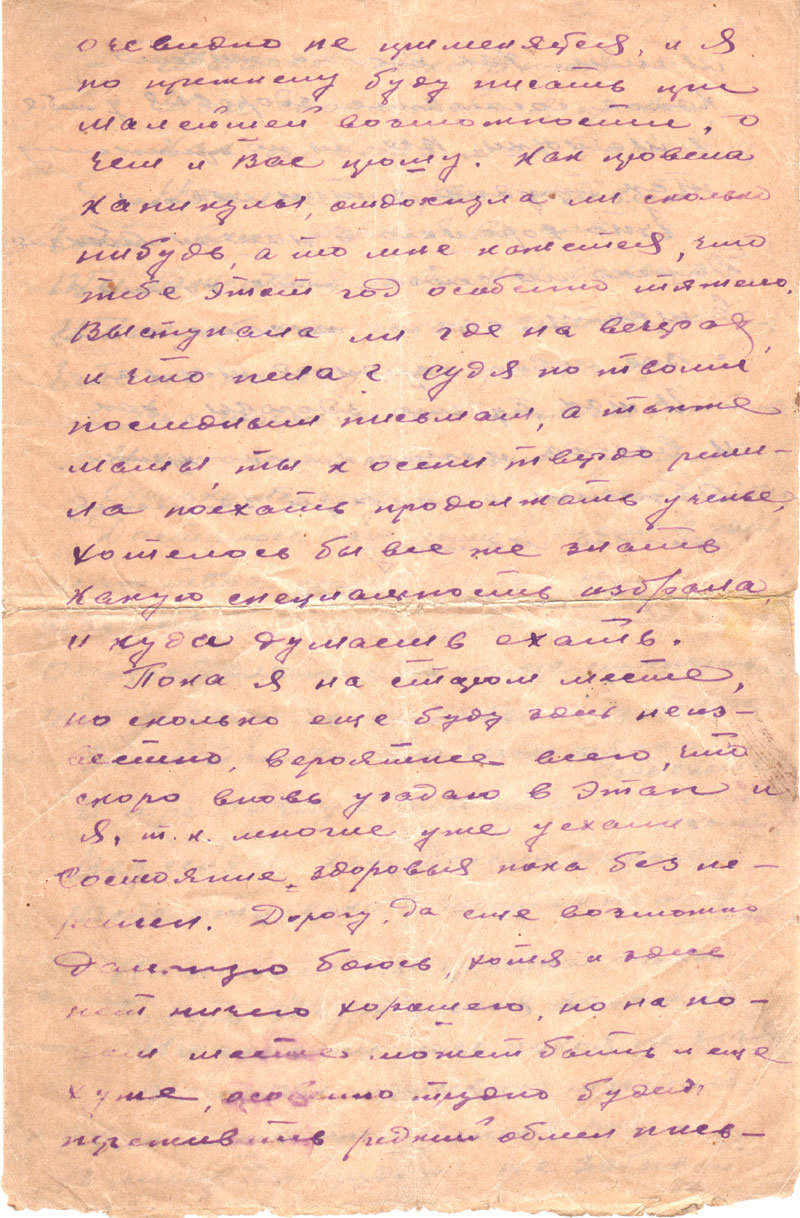 очевидно не применяется, и я
по прежнему буду писать при
малейшей возможности, о
чем и Вас прошу. Как провела
каникулы, отдохнула ли сколько
нибудь, а то мне кажется, что
тебе этот год особенно тяжело.
Выступала ли где на вечерах,
и что пела? Судя по твоим
последним письмам, а также
мамы, ты к осени твердо реши-
ла поехать продолжать ученье,
хотелось бы все же знать
какую специальность избрала,
и куда думаешь ехать.
Пока я на старом месте,
но сколько еще буду здесь неиз-
вестно, вероятнее всего, что
скоро вновь угадаю в этап и
я, т.к. многие уже уехали
Состояние здоровья пока без пе-
ремен. Дорогу, да еще возможно
дальнюю боюсь, хотя и здесь
нет ничего хорошего, но на но-
вом месте может быть и еще
хуже, особенно трудно будет
переживать редкий обмен пись-